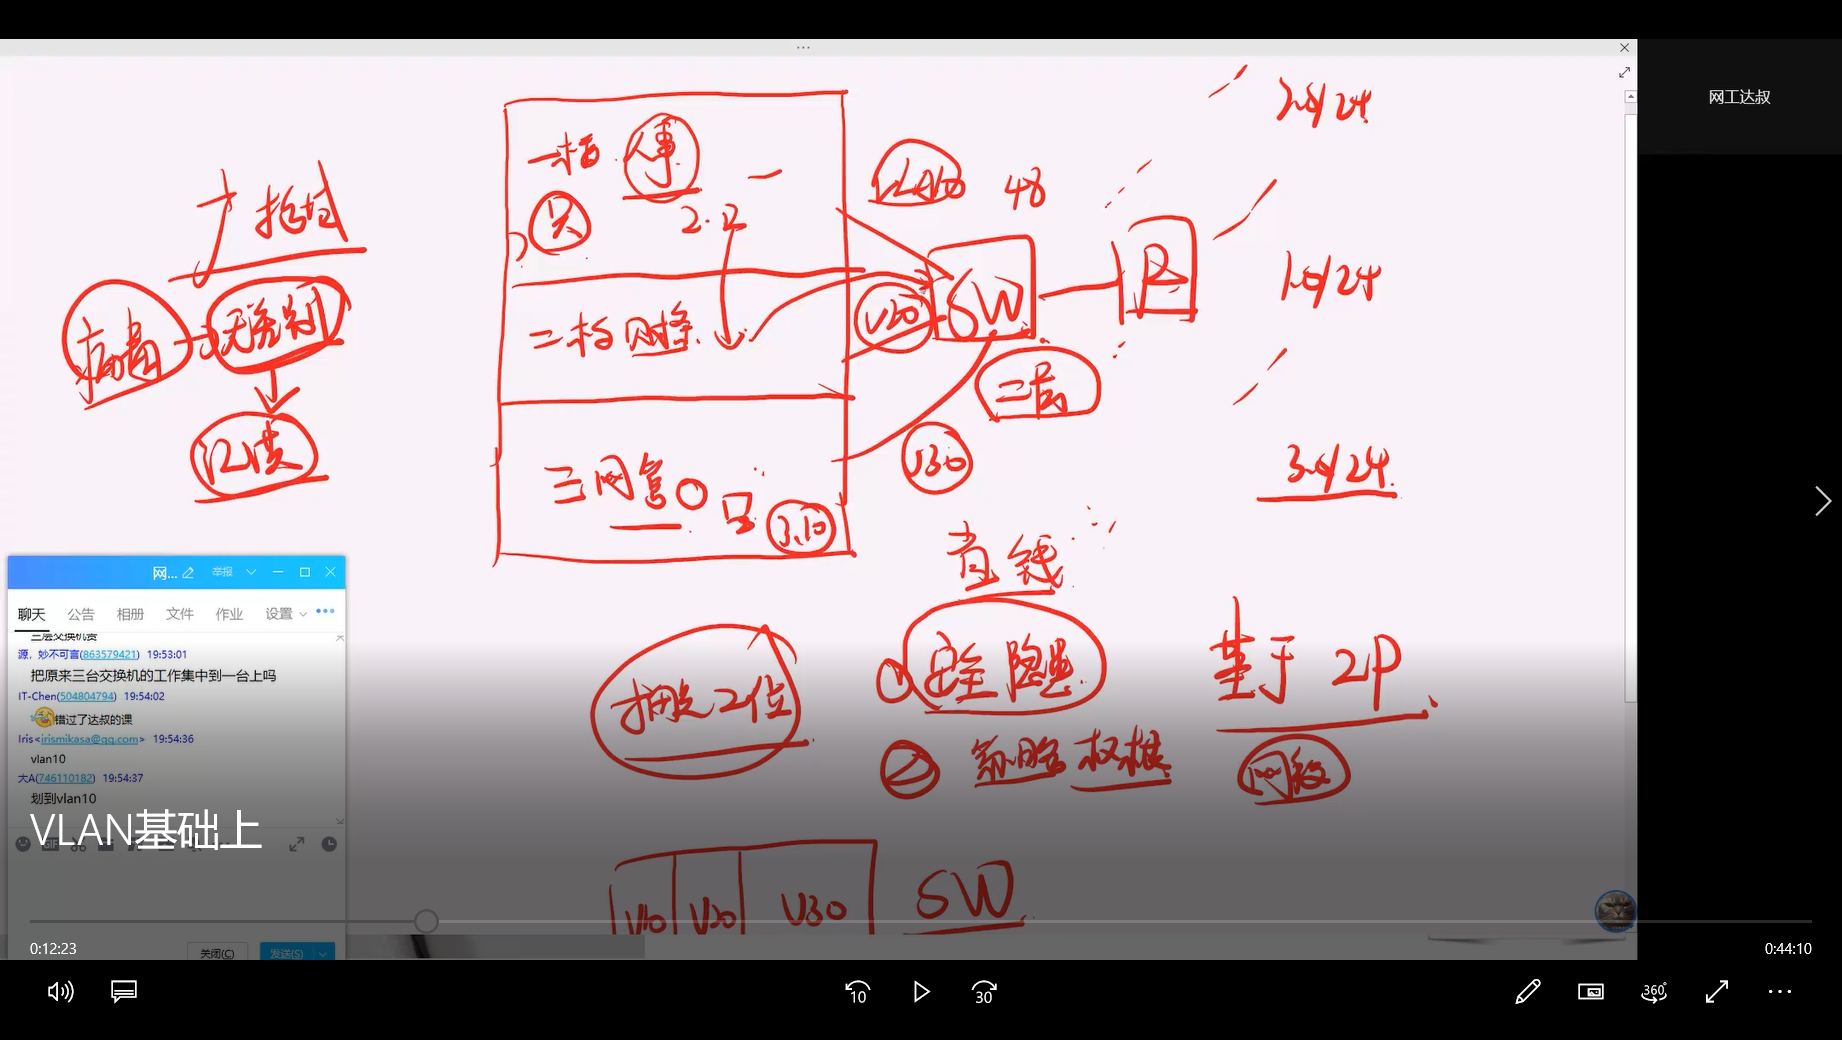 网工达叔
2.0/24
一楼 人事
2.2
VLAN10
48
广播域
SW
R
1.0/24
病毒
无差别
二楼 财务
V20
二层
泛洪
V30
3.0/24
三 网管
3.10
省钱
安全隐患
基于 IP
2位
策略 权限
网段
V10 V20 V30
SW
网...
举报
聊天 公告 相册 文件 作业 设置
三层交换机贵
源，妙不可言(863579421) 19:53:01
把原来三台交换机的工作集中到一台上吗
IT-Chen(504804794) 19:54:02
错过了达叔的课
Iris<irismikasa@qq.com> 19:54:36
vlan10
大A(746110182) 19:54:37
划到vlan10
VLAN基础上
关闭(C) 发送(S)
0:12:23
0:44:10
10
30
360